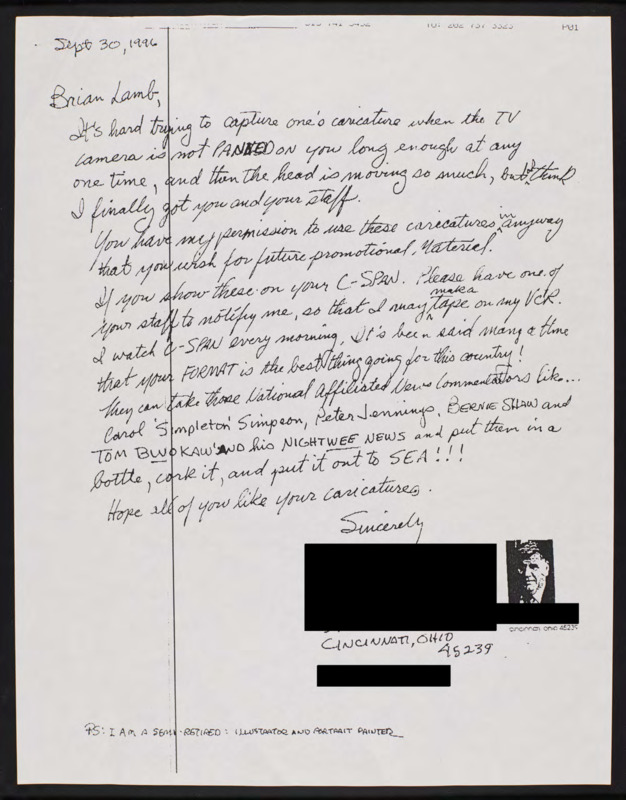 TO: 202 737 3323 P01
Sept 30, 1996
Brian Lamb,
It's hard trying to capture one's caricature when the TV
camera is not PANNED on you long enough at any
one time, and then the head is moving so much, but I think
I finally got you and your staff.
You have my permission to use these caricatures in anyway
that you wish for future promotional Material.
If you show these on your C-SPAN. Please have one of
your staff to notify me, so that I may make tape on my VCR.
I watch C-SPAN every morning. It's been said many a time
that your FORMAT is the best thing going for this country!
They can take those National Affiliated News Commentators like...
Carol 'Simpleton' Simpson, Peter Jennings, BERNIE SHAW and
TOM BWOKAW AND his NIGHTWEE NEWS and put them in a
bottle, cork it, and put it out to SEA!!!
Hope all of you like your caricatures.
Sincerely
CINCINNATI, OHIO
45239
CINCINNATI, OHIO 45239
PS: I AM A SEMI-RETIRED: ILLUSTRATOR AND PORTRAIT PAINTER